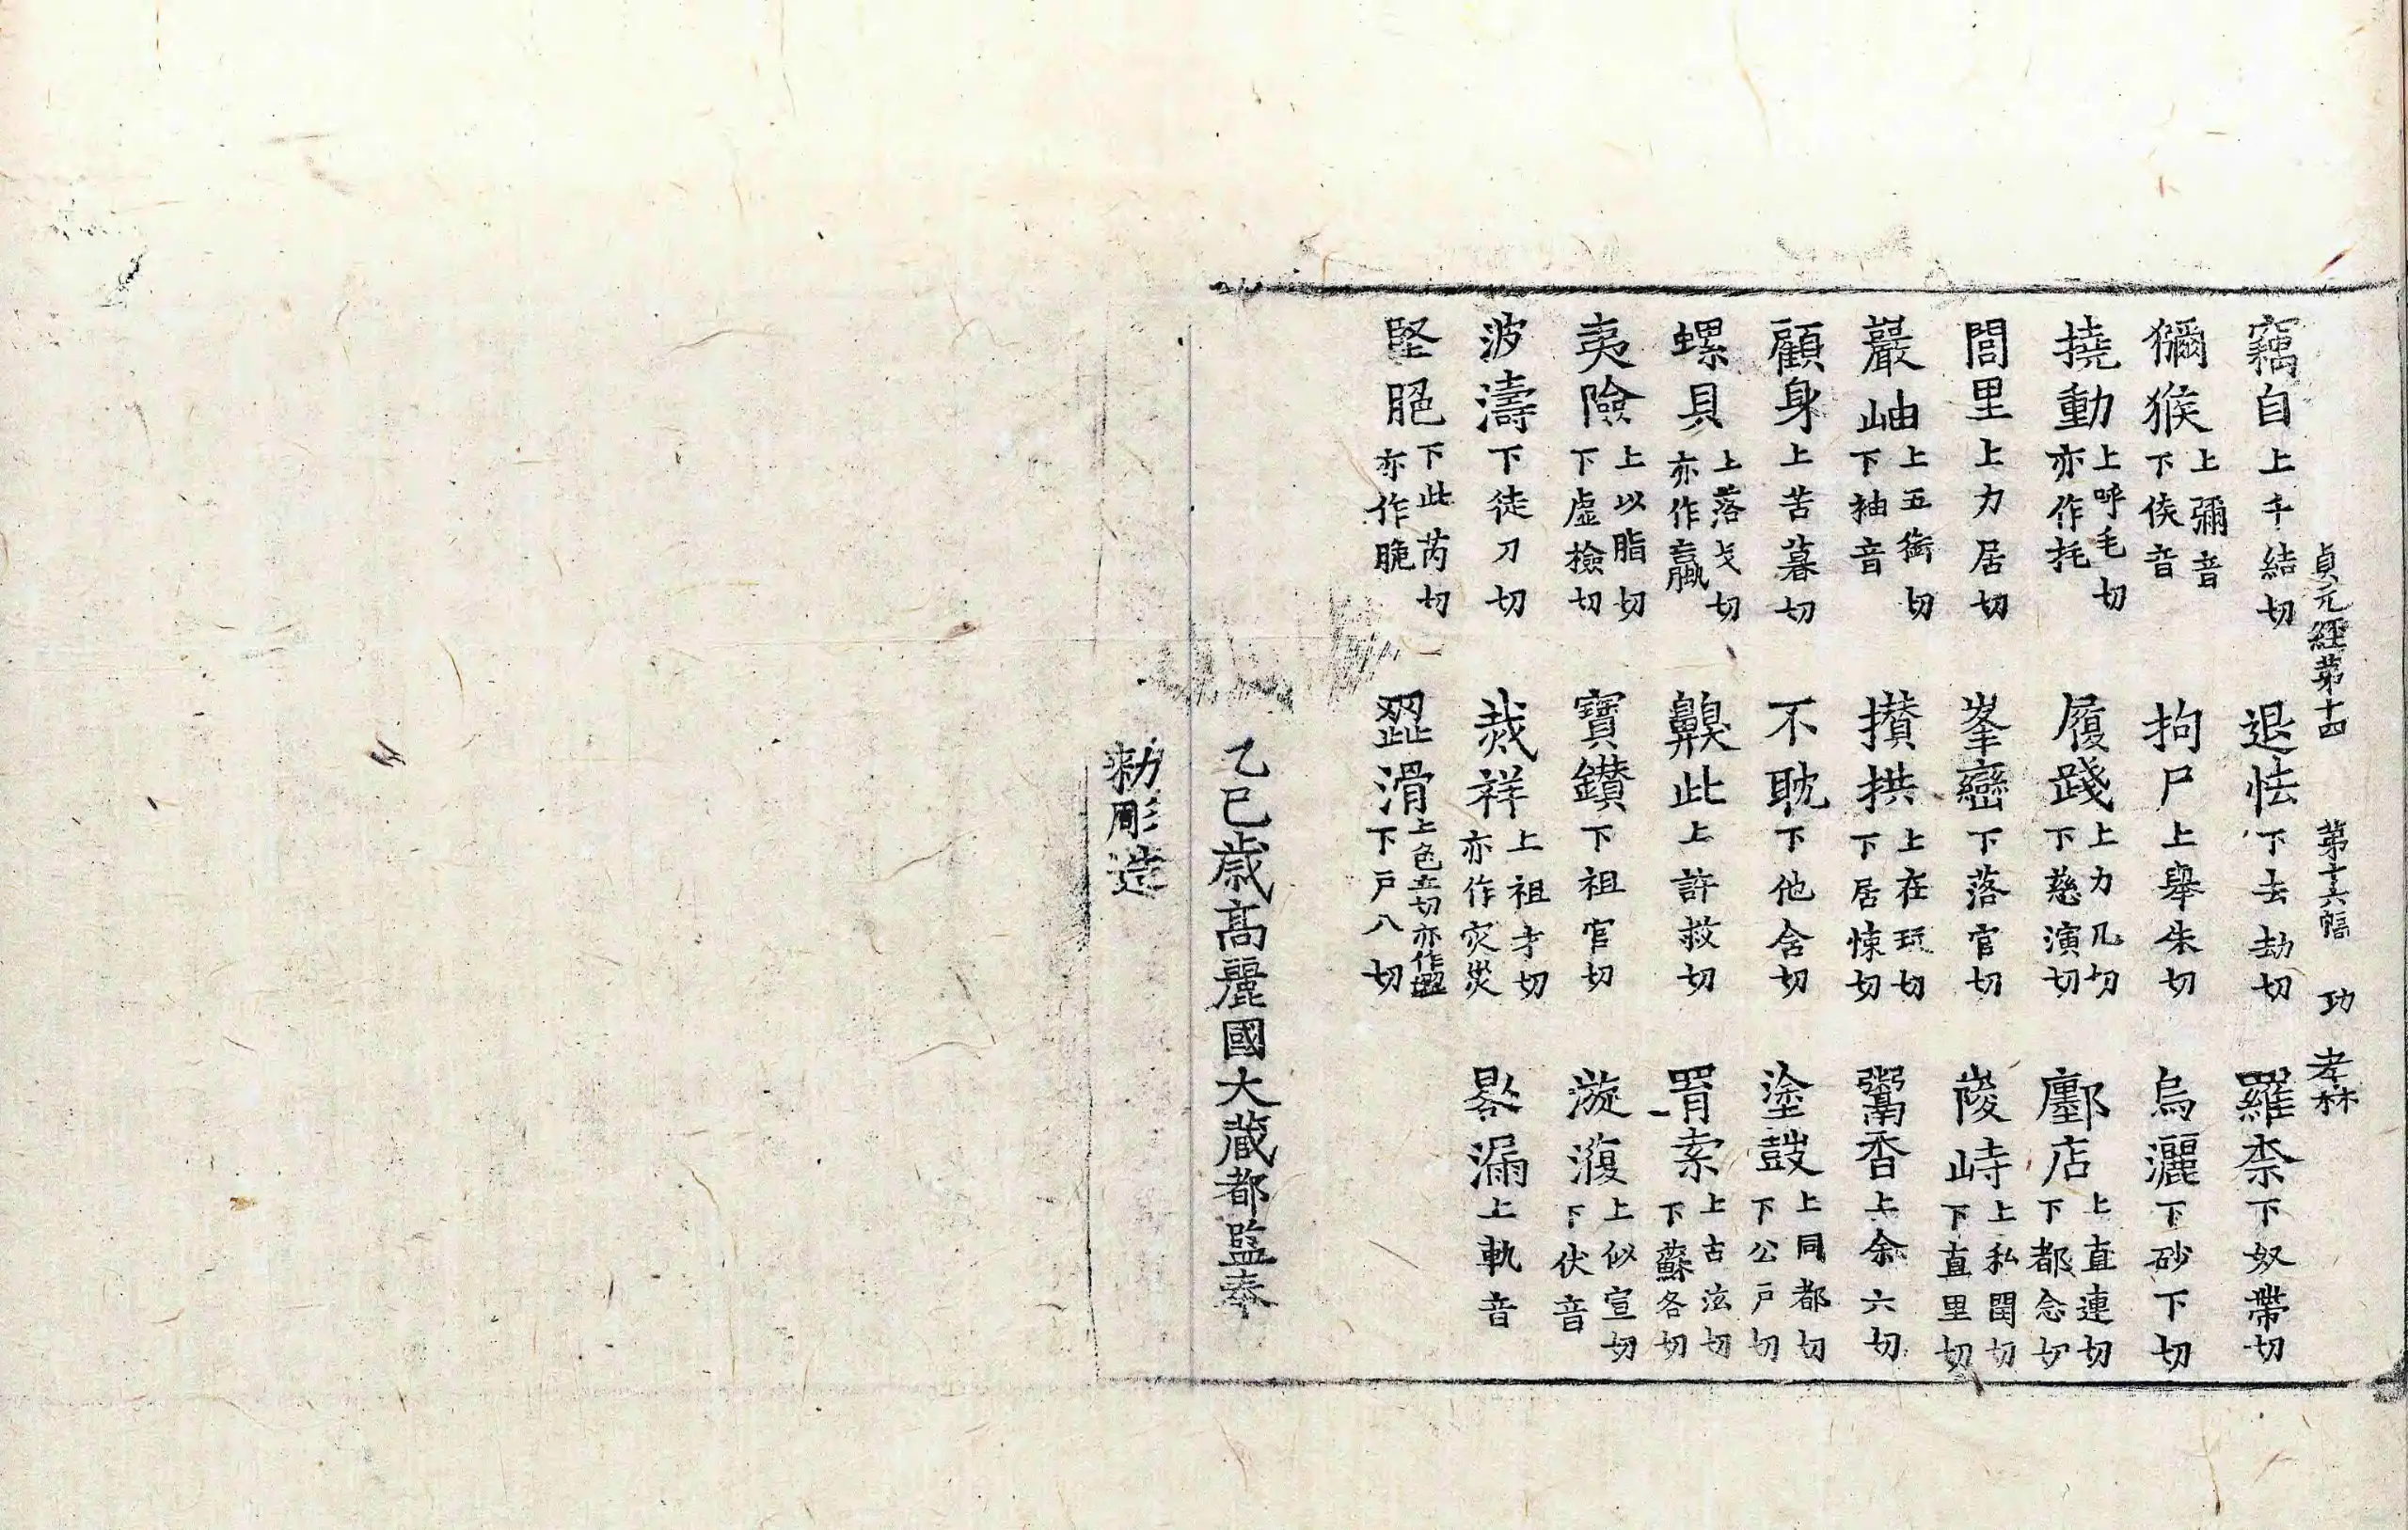 貞元經第十四 第十六幅 功 孝林
竊自上千結切 退怯下去劫切 羅柰下奴帶切
獼猴上彌音下侯音 拘尸上舉朱切 烏灑下砂下切
撓動上呼毛切亦作托 履踐上力几切下慈演切 鄽店上直連切下都念切
閭里上力居切 峯巒下落官切 峻峙上私閏切下直里切
巖岫上五銜切下袖音 攢拱上在玩切下居悚切 鬻香上余六切
顧身上苦暮切 不耽下他含切 塗鼓上同都切下公戶切
螺貝上落戈切亦作蠃 齅此上許救切 罥索上古泫切下蘇各切
夷險上以脂切下虛檢切 寶鑽下祖官切 漩澓上似宣切下伏音
波濤下徒刀切 烖祥上祖才切亦作灾災 晷漏上軌音
堅脆下此芮切亦作脃 澀滑上色立切亦作下戶八切
乙巳歲高麗國大藏都監奉
勅彫造